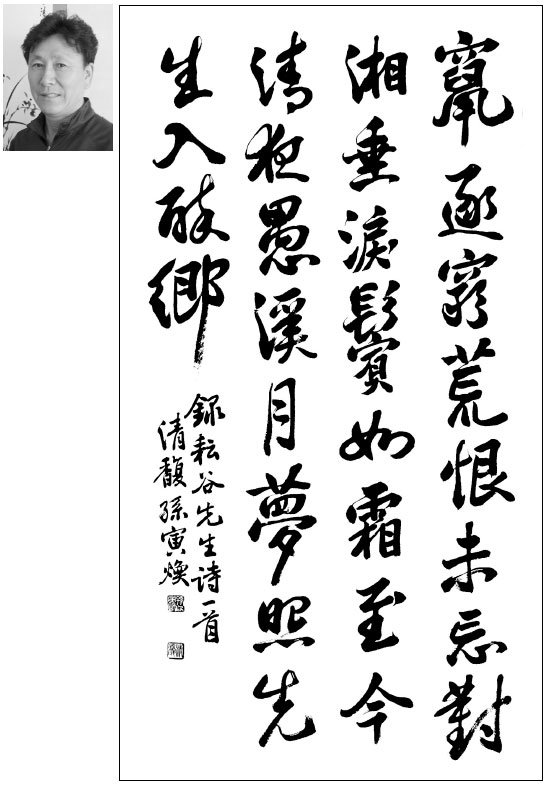 竄逐窮荒恨未忘對
湘垂淚鬢如霜至今
清夜愚溪月夢照先
生入醉鄉
錄耘谷先生詩一首
清馥孫寅煥